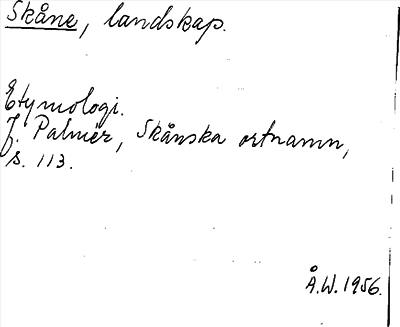 Skåne, landskap.
Etymologi.
J. Palmér, Skånska ortnamn,
s. 113.
Å.W. 1956.